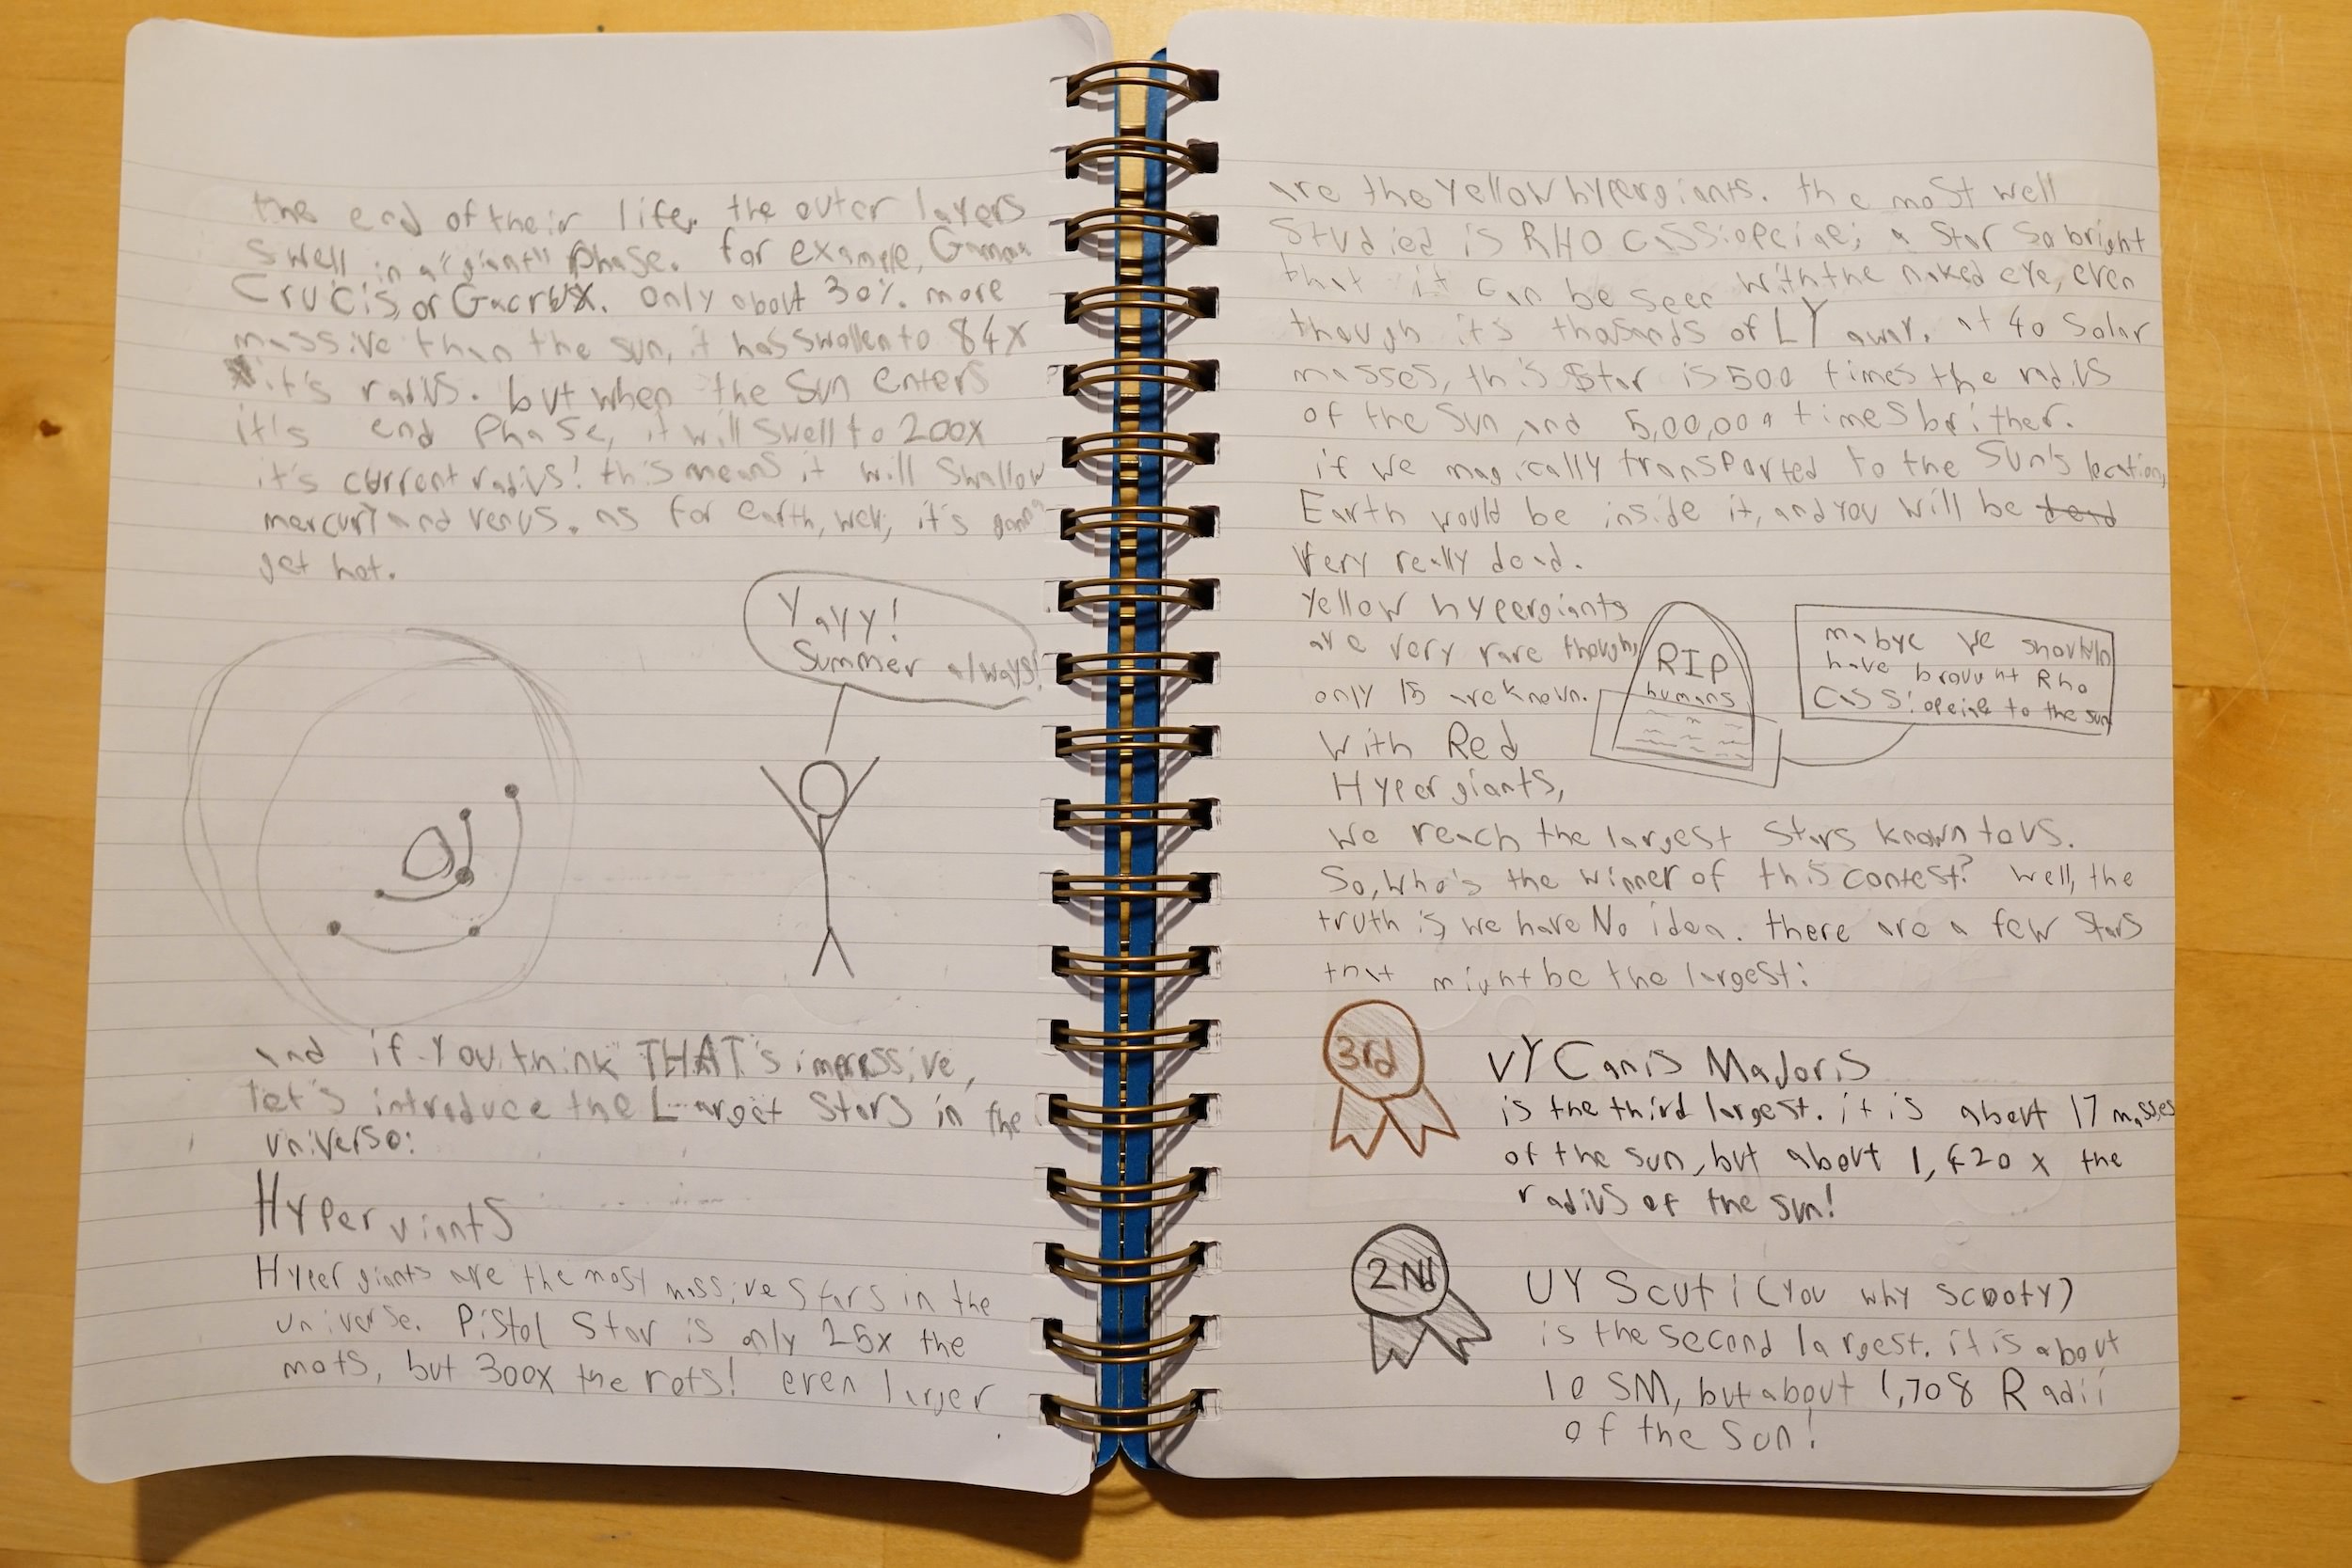 the end of their life. the outer layers
swell in a "giant" phase. for example, Gamma
Crucis, or Gacrux. only about 30% more
massive than the sun, it has swollen to 84x
it's radius. but when the Sun enters
it's end Phase, it will swell to 200x
it's current radius! this means it will Swallow
mercury and venus. as for earth, well, it's gonna
get hot.
Yayy!
Summer always!
and if you think THAT's impressive,
let's introduce the Largest Stars in the
universe:
Hyper giants
Hyper giants are the most massive stars in the
universe. Pistol Star is only 25x the
mots, but 300x the rots! even larger
are the Yellow hypergiants. the most well
Studied is RHO cassiopeiae; a Star so bright
that it can be seen with the naked eye, even
though it's thosands of LY away. at 40 Solar
masses, this Star is 500 times the radius
of the Sun and 5,00,000 times brither.
if we magically transported to the Sun's location,
Earth would be inside it, and you will be dead
Very really dead.
Yellow hypergiants
are very rare though,
only 15 are known.
RIP
humans
mabye we shouldn
have brought Rho
CASSiopeiae to the sun
With Red
Hypergiants,
we reach the largest Stars known to us.
So, who's the winner of this contest? Well, the
truth is, we have No idea. there are a few Stars
that might be the largest:
3rd
VY Canis Majoris
is the third largest. it is about 17 masses
of the sun, but about 1,420 x the
radius of the sun!
2Nd
UY Scuti (you why scooty)
is the second largest. it is about
10 SM, but about 1,708 Radii
of the Sun!